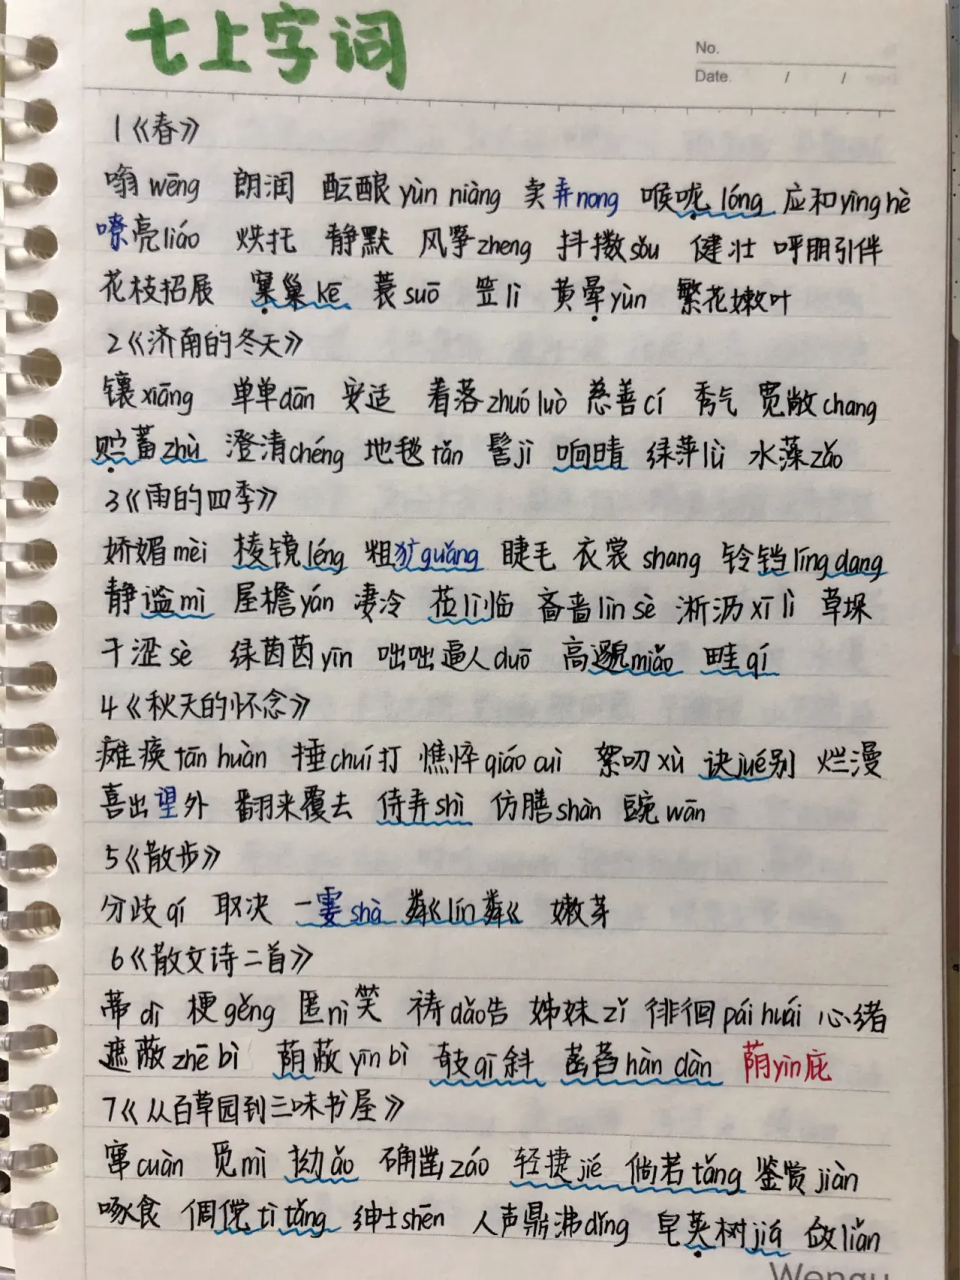 七上字词
No.
Date / /
1《春》
嗡wēng 朗润 酝酿yùn niàng 卖弄nong 喉咙lóng 应和yìng hè
嘹亮liáo 烘托 静默 风筝zheng 抖擞sǒu 健壮 呼朋引伴
花枝招展 窠巢kē 蓑suō 笠lì 黄晕yùn 繁花嫩叶
2《济南的冬天》
镶xiāng 单单dān 安适 着落zhuó luò 慈善cí 秀气 宽敞chang
贮蓄zhù 澄清chéng 地毯tǎn 髻jì 响晴 绿萍lǜ 水藻zǎo
3《雨的四季》
娇媚mèi 棱镜léng 粗犷guǎng 睫毛 衣裳shang 铃铛líng dang
静谧mì 屋檐yán 凄冷 莅lì临 吝啬lìn sè 淅沥xī lì 草垛
干涩sè 绿茵茵yīn 咄咄逼人duō 高邈miǎo 畦qí
4《秋天的怀念》
瘫痪tān huàn 捶chuí打 憔悴qiáo cuì 絮叨xù 诀jué别 烂漫
喜出望外 翻来覆去 侍弄shì 仿膳shàn 豌wān
5《散步》
分歧qí 取决 一霎shà 粼粼lín粼粼 嫩芽
6《散文诗二首》
蒂dì 梗gěng 匿nì笑 祷dǎo告 姊妹zǐ 徘徊pái huái 心绪
遮蔽zhē bì 荫蔽yīn bì 攲qī斜 菡萏hàn dàn 荫yìn庇
7《从百草园到三味书屋》
窜cuàn 觅mì 拗ǎo 确凿záo 轻捷jié 倘若tǎng 鉴赏jiàn
啄食 倜傥tì tǎng 绅士shēn 人声鼎沸dǐng 皂荚树jiá 敛liǎn